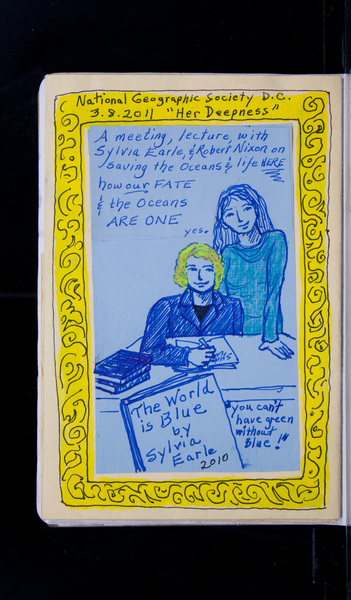 National Geographic Society D.C.
3.8.2011 "Her Deepness"
A meeting, lecture, with
Sylvia Earle, & Robert Nixon on
saving the Oceans & life HERE
how our FATE
& the Oceans
ARE ONE
yes.
The World
is Blue
by
Sylvia
Earle
2010
"you can't
have green
without
Blue!"